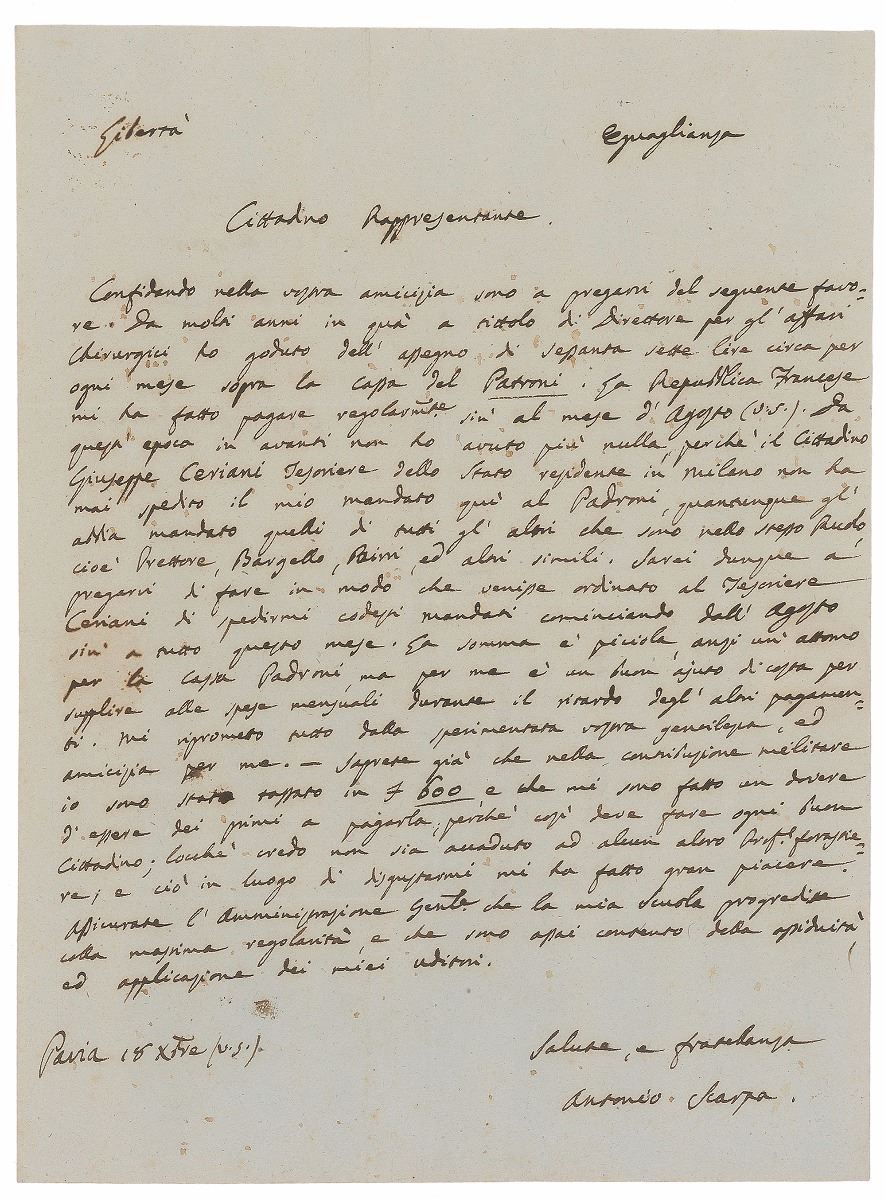 Libertà Eguaglianza
Cittadino Rappresentante.
Confidando nella vostra amicizia sono a pregarvi del seguente favo=
re. Da molti anni in quà a tittolo di Direttore per gl'affari
Chirurgici ho goduto dell'assegno di sessanta sette lire circa per
ogni mese sopra la cassa del Patroni. La Repubblica Francese
mi ha fatto pagare regolarmte sin' al mese d'Agosto (v.s.). Da
quest'epoca in avanti non ho avuto più nulla, perchè il Cittadino
Giuseppe Ceriani Tesoriere dello Stato residente in Milano non ha
mai spedito il mio mandato quì al Padroni, quantunque gl'
abbia mandato quelli di tutti gl'altri che sono nello stesso Ruolo,
cioè Prettore, Bargello, Birri, ed altri simili. Sarei dunque a
pregarvi di fare in modo che venisse ordinato al Tesoriere
Ceriani di spedirmi codesti mandati cominciando dall'Agosto
sin' a tutto questo mese. La somma è picciola, anzi un'attomo
per la Cassa Padroni, ma per me è un buon ajuto di costa per
supplire alle spese mensuali durante il ritardo degl'altri pagamen=
ti. Mi riprometo tutto dalla sperimentata vostra gentilezza, ed
amicizia per me. — Saprete già che nella contribuzione militare
io sono stato tassato in 600 e che mi sono fatto un dovere
d'essere dei primi a pagarla, perchè così deve fare ogni buon
Cittadino; locchè credo non sia accaduto ad alcun altro Profr. forastie=
re; e ciò in luogo di disgustarmi mi ha fatto gran piacere.
Assicurate l'Amministrazione Genle. che la mia Scuola progredisse
colla massima regolarità, e che sono assai contento della assiduità,
ed applicazione dei miei uditori.
Pavia 18 Xbre (v.s.). Salute, e fratelanza
Antonio Scarpa.